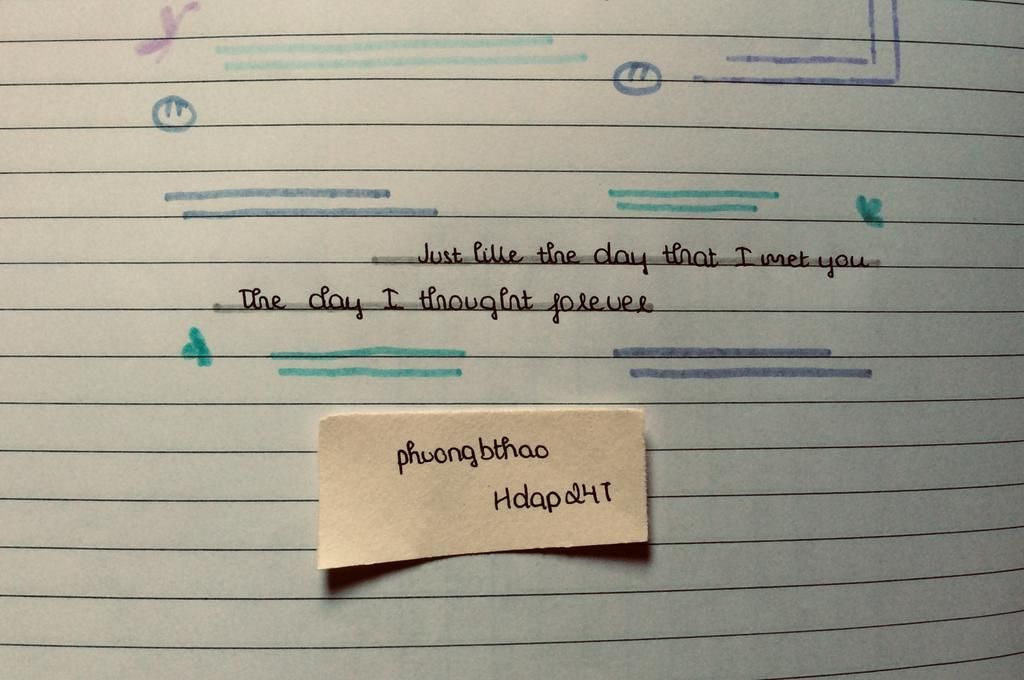 Just like the day that I met you
The day I thought forever
phuongbthao
Hdapd4T